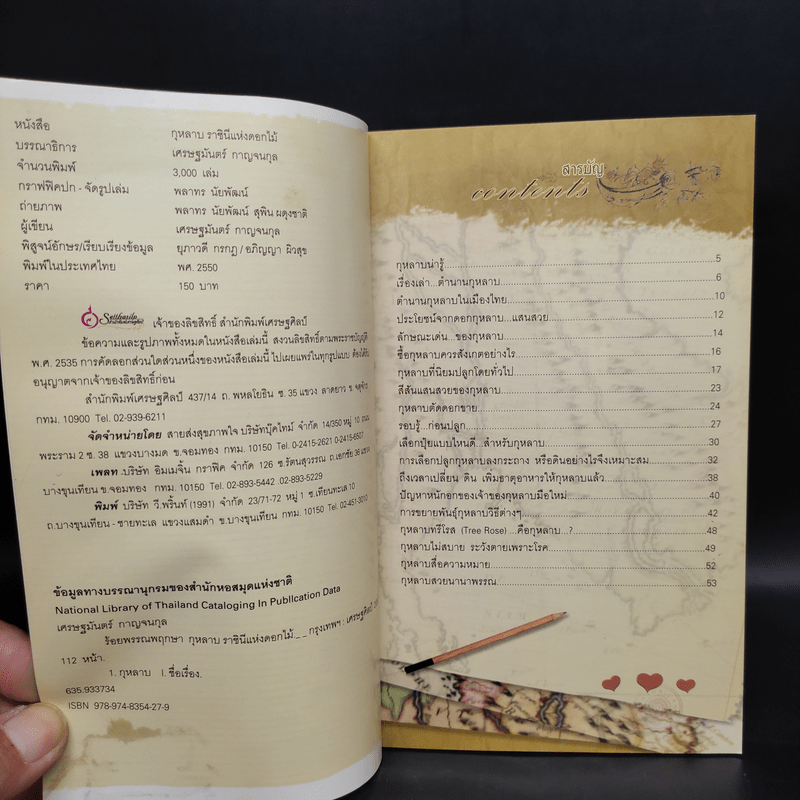 หนังสือ กุหลาบ ราชินีแห่งดอกไม้
บรรณาธิการ เศรษฐมันตร์ กาญจนกุล
จำนวนพิมพ์ 3,000 เล่ม
กราฟฟิคปก - จัดรูปเล่ม พลาทร นัยพัฒน์
ถ่ายภาพ พลาทร นัยพัฒน์ สุพิน ผดุงชาติ
ผู้เขียน เศรษฐมันตร์ กาญจนกุล
พิสูจน์อักษร/เรียบเรียงข้อมูล ยุภาวดี กรกฎ / อภิญญา ผิวสุข
พิมพ์ในประเทศไทย พศ. 2550
ราคา 150 บาท
เจ้าของลิขสิทธิ์ สำนักพิมพ์เศรษฐศิลป์
ข้อความและรูปภาพทั้งหมดในหนังสือเล่มนี้ สงวนลิขสิทธิ์ตามพระราชบัญญัติ
พ.ศ. 2535 การคัดลอกส่วนใดส่วนหนึ่งของหนังสือเล่มนี้ ไปเผยแพร่ในทุกรูปแบบ ต้องได้รับ
อนุญาตจากเจ้าของลิขสิทธิ์ก่อน
สำนักพิมพ์เศรษฐศิลป์ 437/14 ถ. พหลโยธิน ซ. 35 แขวง ลาดยาว ข. จตุจักร
กทม. 10900 Tel. 02-939-6211
จัดจำหน่ายโดย สายส่งสุขภาพใจ บริษัทบุ๊คไทม์ จำกัด 14/350 หมู่ 10 ถนน
พระราม 2 ซ. 38 แขวงบางมด ข.จอมทอง กทม. 10150 Tel. 0-2415-2621 0-2415-6507
เพลท .บริษัท อิมเมจิ้น กราฟิค จำกัด 126 ซ.รัตนสุวรรณ ถ.เอกชัย 36 แขวง
บางขุนเทียน ข.จอมทอง กทม. 10150 Tel. 02-893-5442 .02-893-5229
พิมพ์ บริษัท วี.พริ้นท์ (1991) จำกัด 23/71-72 หมู่ 1 ซ.เทียนทะเล 10
ถ.บางขุนเทียน - ชายทะเล แขวงแสมดำ ข.บางขุนเทียน กทม. 10150 Tel. 02-451-3010
ข้อมูลทางบรรณานุกรมของสำนักหอสมุดแห่งชาติ
National Library of Thailand Cataloging In Publication Data
เศรษฐมันตร์ กาญจนกุล
ร้อยพรรณพฤกษา กุหลาบ ราชินีแห่งดอกไม้.__ กรุงเทพฯ : เศรษฐศิลป์
112 หน้า.
1. กุหลาบ I. ชื่อเรื่อง.
635.933734
ISBN 978-974-8354-27-9
สารบัญ
contents
กุหลาบน่ารู้ 5
เรื่องเล่า...ตำนานกุหลาบ 6
ตำนานกุหลาบในเมืองไทย 10
ประโยชน์จากดอกกุหลาบ...แสนสวย 12
ลักษณะเด่น...ของกุหลาบ 14
ซื้อกุหลาบควรสังเกตอย่างไร 16
กุหลาบที่นิยมปลูกโดยทั่วไป 17
สีสันแสนสวยของกุหลาบ 23
กุหลาบตัดดอกขาย 24
รอบรู้...ก่อนปลูก 27
เลือกปุ๋ยแบบไหนดี...สำหรับกุหลาบ 30
การเลือกปลูกกุหลาบลงกระถาง หรือดินอย่างไรจึงเหมาะสม 32
ถึงเวลาเปลี่ยน ดิน เพิ่มธาตุอาหารให้กุหลาบแล้ว 38
ปัญหาหนักอกของเจ้าของกุหลาบมือใหม่ 40
การขยายพันธุ์กุหลาบวิธีต่างๆ 42
กุหลาบทรีโรส (Tree Rose) ...คือกุหลาบ...? 48
กุหลาบไม่สบาย ระวังตายเพราะโรค 49
กุหลาบสื่อความหมาย 52
กุหลาบสวยนานาพรรณ 53